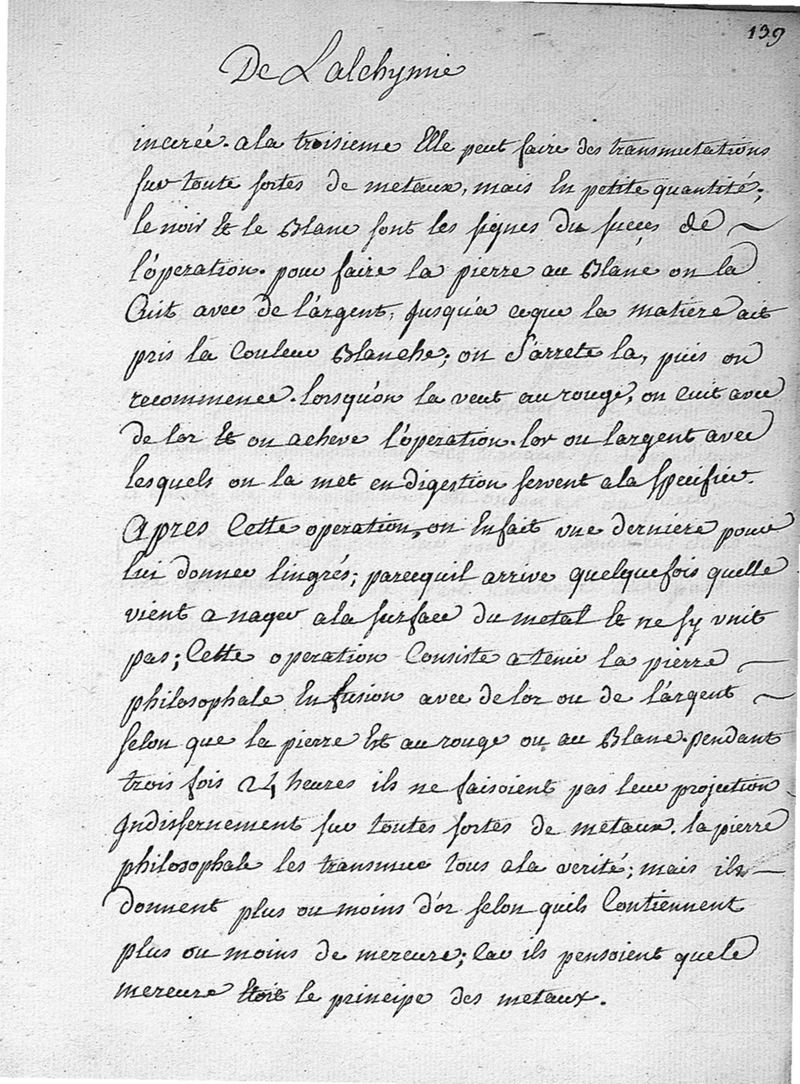 139
De Lalchymie
incréé. a la troisieme Elle peut faire des transmutations
sur toute sortes de metaux, mais En petite quantité;
le noir Et le Blanc sont les signes du succes de
l'óperation. pour faire la pierre au Blanc on la
Cuit avec de l'árgent, Jusqu'a ceque la matiere ait
pris la Couleur Blanche; on S'arrete la, puis on
recommence. lorsqu'on la veut au rouge, on cuit avec
de lor Et on acheve l'óperation. lor ou largent avec
lesquels on la met en digestion servent a la specifier.
Apres Cette operation, on En fait vne derniere pour
lui donner lingrés; parcequil arrive quelquefois quelle
vient a nager a la surface du metal Et ne sy vnit
pas; Cette operation Consiste a tenir la pierre
philosophale En fusion avec de lor ou de l'árgent
selon que la pierre Est au rouge ou au Blanc. pendant
trois fois 24 heures ils ne faisoient pas leur projection
Indisfernement sur toutes sortes de métaux. la pierre
philosophale les transmue tous a la verité; mais ils
donnent plus ou moins d'or selon quils Contiennent
plus ou moins de mercure; Car ils pensoient quele
mercure Etoit le principe des metaux.